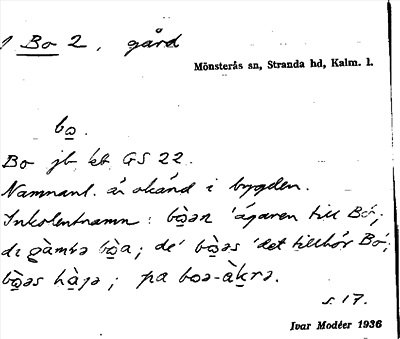 1 Bo 2, gård
Mönsterås sn, Stranda hd, Kalm. l.
bo̲.
Bo jb kb GS 22.
Namnanl. är okänd i bygden.
Inkolentnamn: bò̲ən 'ägaren till Bo';
di gàmbə bò̲a; de' bò̲əs 'det tillhör Bo';
bò̲əs hàjə; pa boə-àkrə.
s. 17.
Ivar Modéer 1936